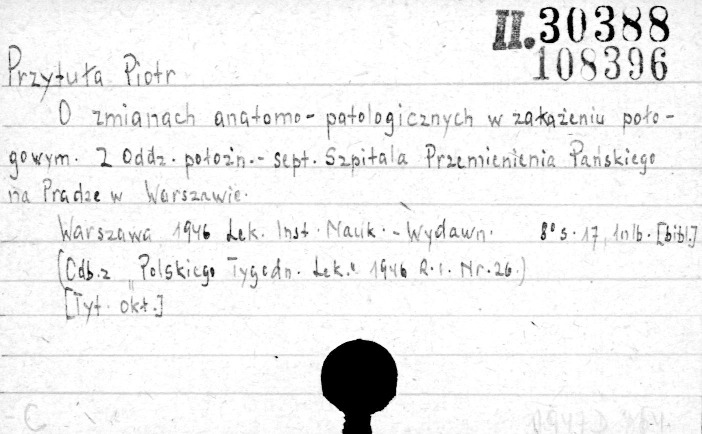 II. 30388
108396
Przytuła Piotr
O zmianach anatomo-patologicznych w zakażeniu poło-
gowym. Z Oddz. położn.-sept. Szpitala Przemienienia Pańskiego
na Pradze w Warszawie.
Warszawa 1946 Lek. Inst. Nauk.-Wydawn. 8° s. 17, 1nlb. [bibl.]
(Odb. z „Polskiego Tygodn. Lek." 1946 R. 1. Nr. 26.)
[Tyt. okł.]